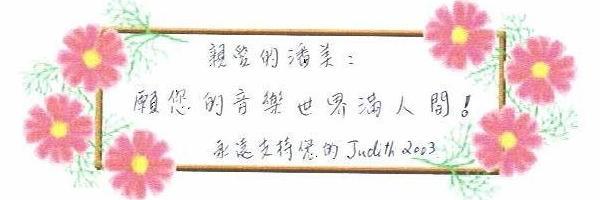 親愛的潘美：
願您的音樂世界滿人間！
永遠支持您的 Judith 2003